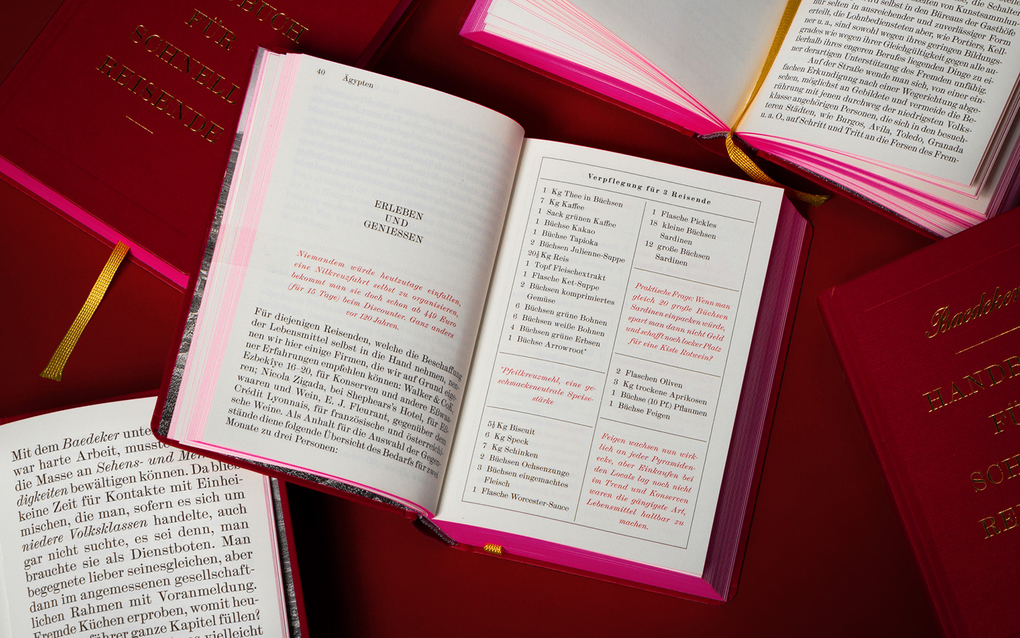 BUCH
FÜR
SCHNELL
REISENDE
40 Ägypten
ERLEBEN
UND
GENIESSEN
Niemandem würde heutzutage einfallen,
eine Nilkreuzfahrt selbst zu organisieren,
bekommt man sie doch schon ab 449 Euro
(für 15 Tage) beim Discounter. Ganz anders
vor 120 Jahren.
Für diejenigen Reisenden, welche die Beschaffung
der Lebensmittel selbst in die Hand nehmen, nen-
nen wir hier einige Firmen, die wir auf Grund eige-
ner Erfahrungen empfehlen können: Walker & Co.,
Ezbekîye 16-20, für Konserven und andere Eßwa-
ren; Nicola Zigada, bei Shephears's Hotel, für Eß-
waaren und Wein, E. J. Fleurant, gegenüber dem
Crédit Lyonnais, für französische und österreichi-
sche Weine. Als Anhalt für die Auswahl der Gegen-
stände diene folgende Übersicht des Bedarfs für zwei
Monate zu drei Personen:
Verpflegung für 3 Reisende
1 Kg Thee in Büchsen
7 Kg Kaffee
1 Sack grünen Kaffee
1 Büchse Kakao
1 Büchse Tapioka
2 Büchsen Julienne-Suppe
20½ Kg Reis
1 Topf Fleischextrakt
1 Flasche Ket-Suppe
2 Büchsen komprimiertes
Gemüse
6 Büchsen grüne Bohnen
6 Büchsen weiße Bohnen
4 Büchsen grüne Erbsen
1 Büchse Arrowroot*
*Pfeilkreuzmehl, eine ge-
schmacksneutrale Speise-
stärke
5½ Kg Biscuit
6 Kg Speck
7 Kg Schinken
2 Büchsen Ochsenzunge
3 Büchsen eingemachtes
Fleisch
1 Flasche Worcester-Sauce
1 Flasche Pickles
18 kleine Büchsen
Sardinen
12 große Büchsen
Sardinen
Praktische Frage: Wenn man
gleich 20 große Büchsen
Sardinen einpacken würde,
spart man dann nicht Geld
und schafft noch locker Platz
für eine Kiste Rotwein?
2 Flaschen Oliven
3 Kg trockene Aprikosen
1 Büchse (10 Pf.) Pflaumen
1 Büchse Feigen
Feigen wachsen nun wirk-
lich an jeder Pyramiden-
ecke, aber Einkaufen bei
den Locals lag noch nicht
im Trend und Konserven
waren die gängigste Art,
Lebensmittel haltbar zu
machen.
die Schalter
von Kunstsammlun
wird selbst in den Büreaus der Gasthöfe
nur selten in ausreichender und zuverlässiger Form
erteilt, die Lohnbediensteten aber, wie Portiers, Kell-
ner u. a., sind sowohl wegen ihres geringen Bildungs-
grades wie wegen ihrer Gleichgültigkeit gegen alle au-
ßerhalb ihres engeren Berufes liegenden Dinge zu ei-
ner derartigen Unterstützung des Fremden unfähig.
Auf der Straße wende man sich, von einer ein-
fachen Erkundigung nach einer Wegerichtung abge-
sehen, möglichst an Gebildete und vermeide die Be-
rührung mit jenen durchweg der niedrigsten Volks-
klasse angehörigen Personen, die sich in den besuch-
teren Städten, wie Burgos, Avila, Toledo, Granada
u. a. O., auf Schritt und Tritt an die Fersen des Frem-
Mit dem Baedeker unte
war harte Arbeit, musste
die Masse an Sehens- und Mer
digkeiten bewältigen können. Da blie
keine Zeit für Kontakte mit Einhei-
mischen, die man, sofern es sich um
niedere Volksklassen handelte, auch
gar nicht suchte, es sei denn, man
brauchte sie als Dienstboten. Man
begegnete lieber seinesgleichen, aber
dann im angemessenen gesellschaft-
lichen Rahmen mit Voranmeldung.
Fremde Küchen erproben, womit heu-
führer ganze Kapitel füllen?
vielleicht
Baedeker
HANDB
FÜ
SCH
RE